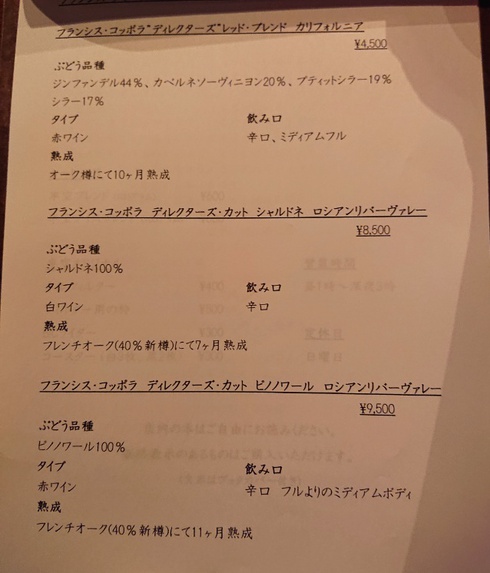 フランシス・コッポラ“ディレクターズ”レッド・ブレンド カリフォルニア
¥4,500
ぶどう品種
ジンファンデル44%、カベルネソーヴィニヨン20%、プティットシラー19%
シラー17%
タイプ 飲み口
赤ワイン 辛口、ミディアムフル
熟成
オーク樽にて10ヶ月熟成
フランシス・コッポラ ディレクターズ・カット シャルドネ ロシアンリバーヴァレー
¥8,500
ぶどう品種
シャルドネ100%
タイプ 飲み口
白ワイン 辛口
熟成
フレンチオーク(40%新樽)にて7ヶ月熟成
フランシス・コッポラ ディレクターズ・カット ピノノワール ロシアンリバーヴァレー
¥9,500
ぶどう品種
ピノノワール100%
タイプ 飲み口
赤ワイン 辛口 フルよりのミディアムボディ
熟成
フレンチオーク(40%新樽)にて11ヶ月熟成